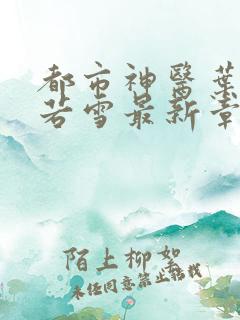 都市神醫葉
若雪最新章
陌上柳如
未经同意禁止转载